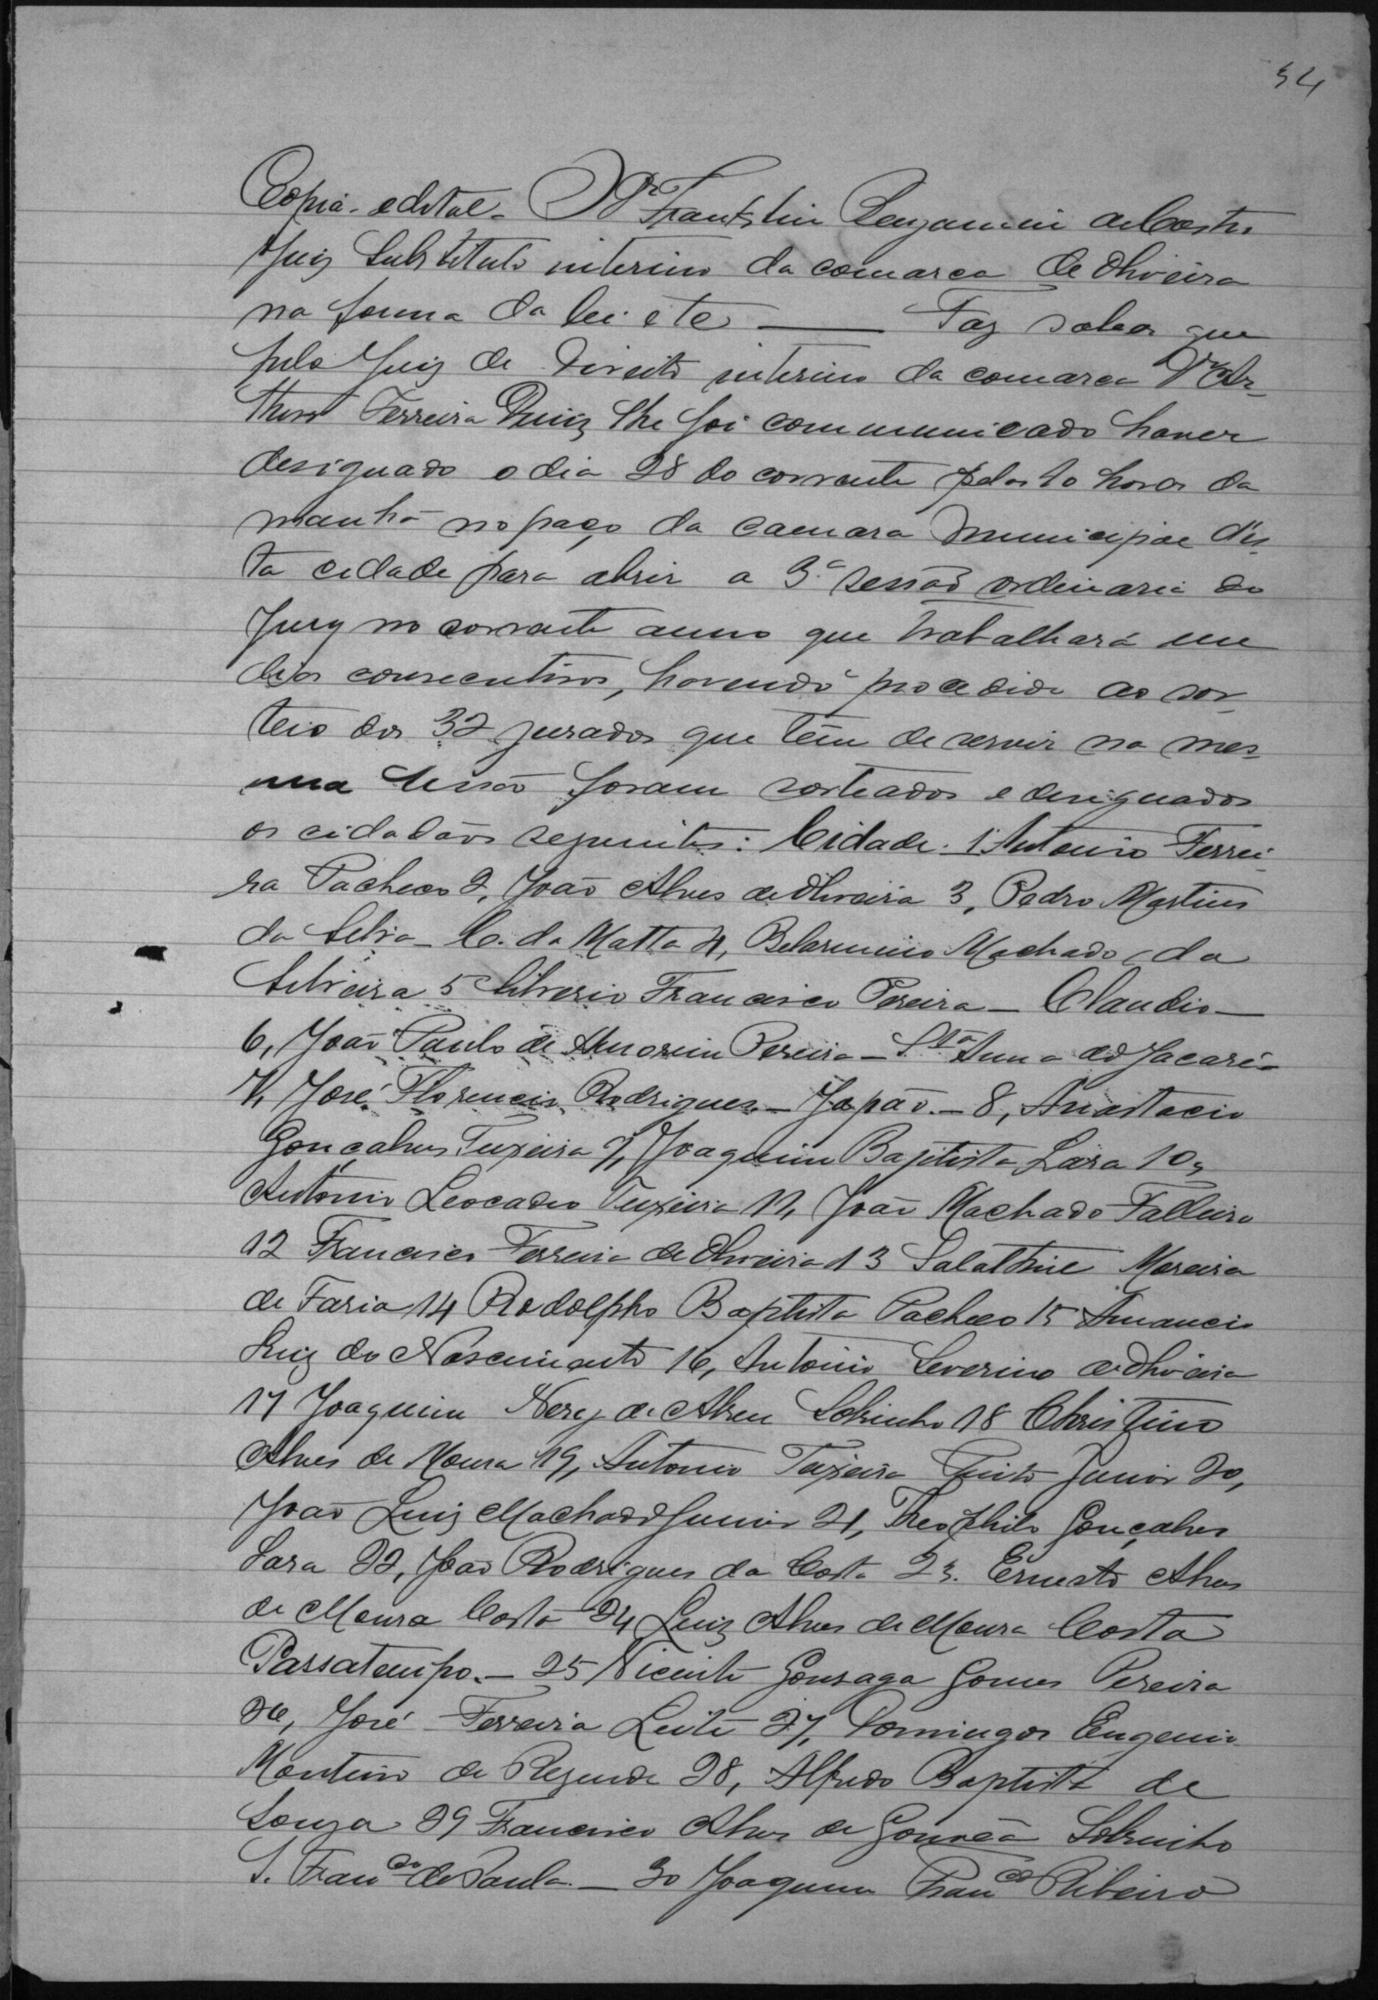 34
Copia. edital. O Dr Franklin Benjamin de Castro
Juiz Substituto interino da comarca de Oliveira
na forma da lei etc — Faz saber que
pelo Juiz de Direito interino da comarca Dr Ar-
thur Ferreira Diniz lhe foi communicado haver
designado o dia 28 do corrente pelas 10 horas da
manhã no paço da camara Municipal d'es-
ta cidade para abrir a 3ª sessão ordinaria do
Jury no corrente anno que trabalhará em
dias consecutivos, havendo procedido ao sor-
teio dos 32 jurados que têm de servir na mes-
ma sessão foram sorteados e designados
os cidadãos seguintes: Cidade. 1 Antonio Ferrei-
ra Pacheco 2, João Alves de Oliveira 3, Pedro Martins
da Silva - C. da Matta 4, Belarmino Machado da
Silveira 5 Silverio Francisco Pereira - Claudio -
6, João Paulo de Amorim Pereira - Sta Anna do Jacaré -
7, José Florencio Rodrigues - Japão. - 8, Anastacio
Gonçalves Teixeira 9, Joaquim Baptista Lara 10,
Antonio Leocadio Teixeira 11, João Machado Falleiro
12 Francisco Ferreira de Oliveira 13 Salathiel Moreira
de Faria 14 Rodolpho Baptista Pacheco 15 Amancio
Luiz do Nascimento 16, Antonio Severino de Oliveira
17 Joaquim Nery de Abreu Sobrinho 18 Christino
Alves de Moura 19, Antonio Teixeira Junior 20,
João Luiz Machado Junior 21, Theophilo Gonçalves
Lara 22, João Rodrigues da Costa 23. Ernesto Alves
de Moura Costa 24 Luiz Alves de Moura Costa
Passatempo. - 25 Vicente Gonzaga Gomes Pereira
26, José Ferreira Leite 27, Domingos Eugenio
Monteiro de Rezende 28, Alfredo Baptista de
Souza 29 Francisco Alves de Gouvêa Sobrinho
S. Franco de Paula. - 30 Joaquim Franco Ribeiro